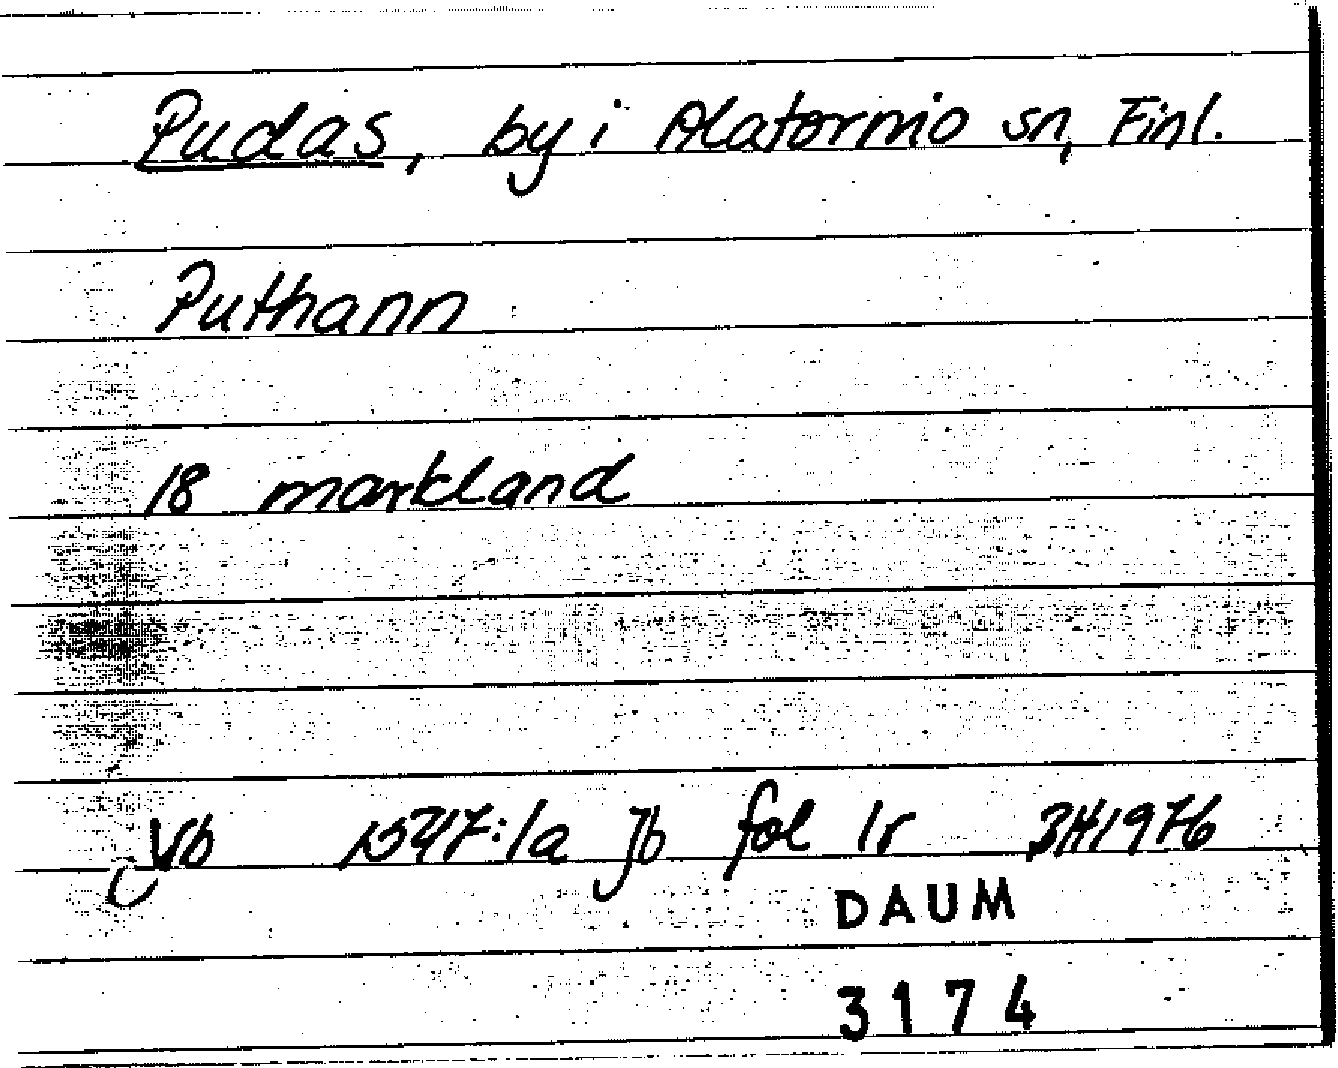 Pudas, by i Alatornio sn, Finl.
Puthann
18 markland
Vb 1547:1a Jb fol 1r BH1976
DAUM
3174